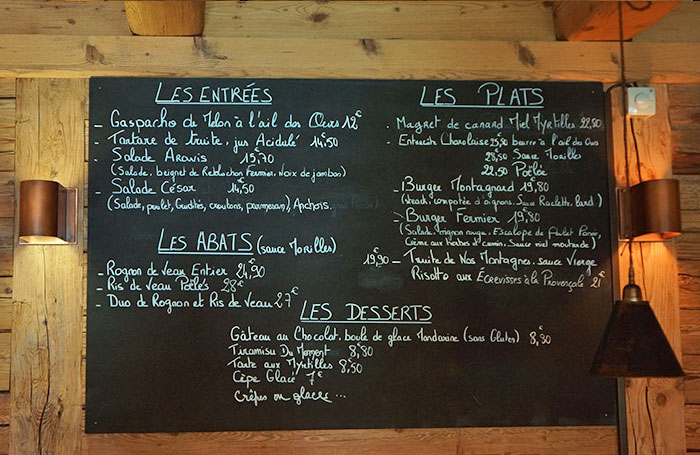 LES ENTRÉES
- Gaspacho de Melon à l'ail des Ours 12€
- Tartare de truite, jus Acidulé 14,50
- Salade Aravis 15,70
(Salade, beignet de Reblochon Fermier, Noix de jambon)
- Salade César 14,50
(Salade, poulet, Crudités, croutons, parmesan), Anchois.
LES ABATS (sauce Morilles)
- Rognon de Veau Entier 24,90
- Ris de Veau Poêlés 28€
- Duo de Rognon et Ris de Veau 27€
LES PLATS
- Magret de canard Miel Myrtilles 22,50
- Entrecôte Charolaise 25,50 beurre à l'ail des Ours
28,50 Sauce Morilles
22,50 Poêlée
- Burger Montagnard 19,80
(steack, compotée d'oignons, Sauce Raclette, lard)
- Burger Fermier 19,80
(Salade, oignon rouge, Escalope de Poulet Panée,
Crème aux herbes et cumin, Sauce miel moutarde)
19,90 - Truite de Nos Montagnes, sauce Vierge
Risotto aux ÉCREVISSES à la Provençale 21€
LES DESSERTS
Gâteau au Chocolat, boule de glace Mandarine (sans Gluten) 8,90
Tiramisu Du Moment 8,80
Tarte aux Myrtilles 8,50
Cèpe Glacé 7€
Crêpes ou glaces ...